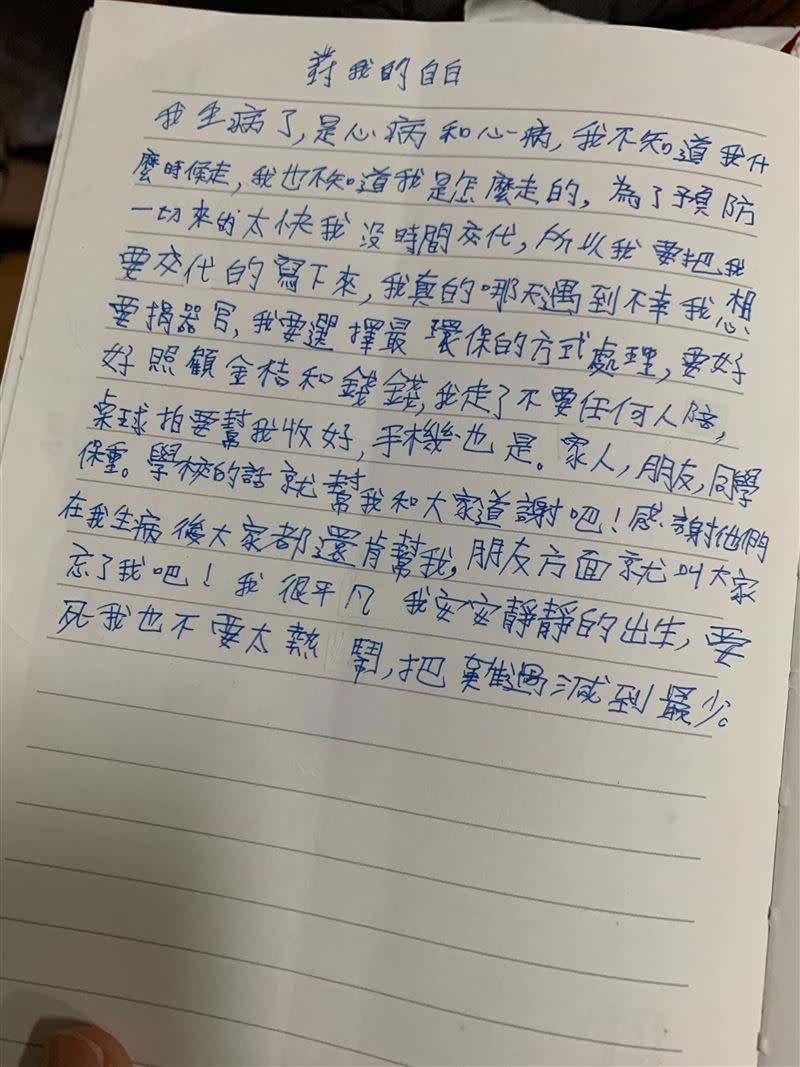 對我的自白
我生病了,是心病和心病,我不知道我什
麼時候走,我也不知道我是怎麼走的,為了預防
一切來的太快我沒時間交代,所以我要把我
要交代的寫下來,我真的哪天遇到不幸我想
要捐器官,我要選擇最環保的方式處理,要好
好照顧金桔和錢錢,我走了不要任何人陪,
桌球拍要幫我收好,手機也是。家人,朋友,同學
保重。學校的話就幫我和大家道謝吧!感謝他們
在我生病後大家都還肯幫我,朋友方面就叫大家
忘了我吧!我很平凡 我安安靜靜的出生,要
死我也不要太熱鬧,把難過減到最少。